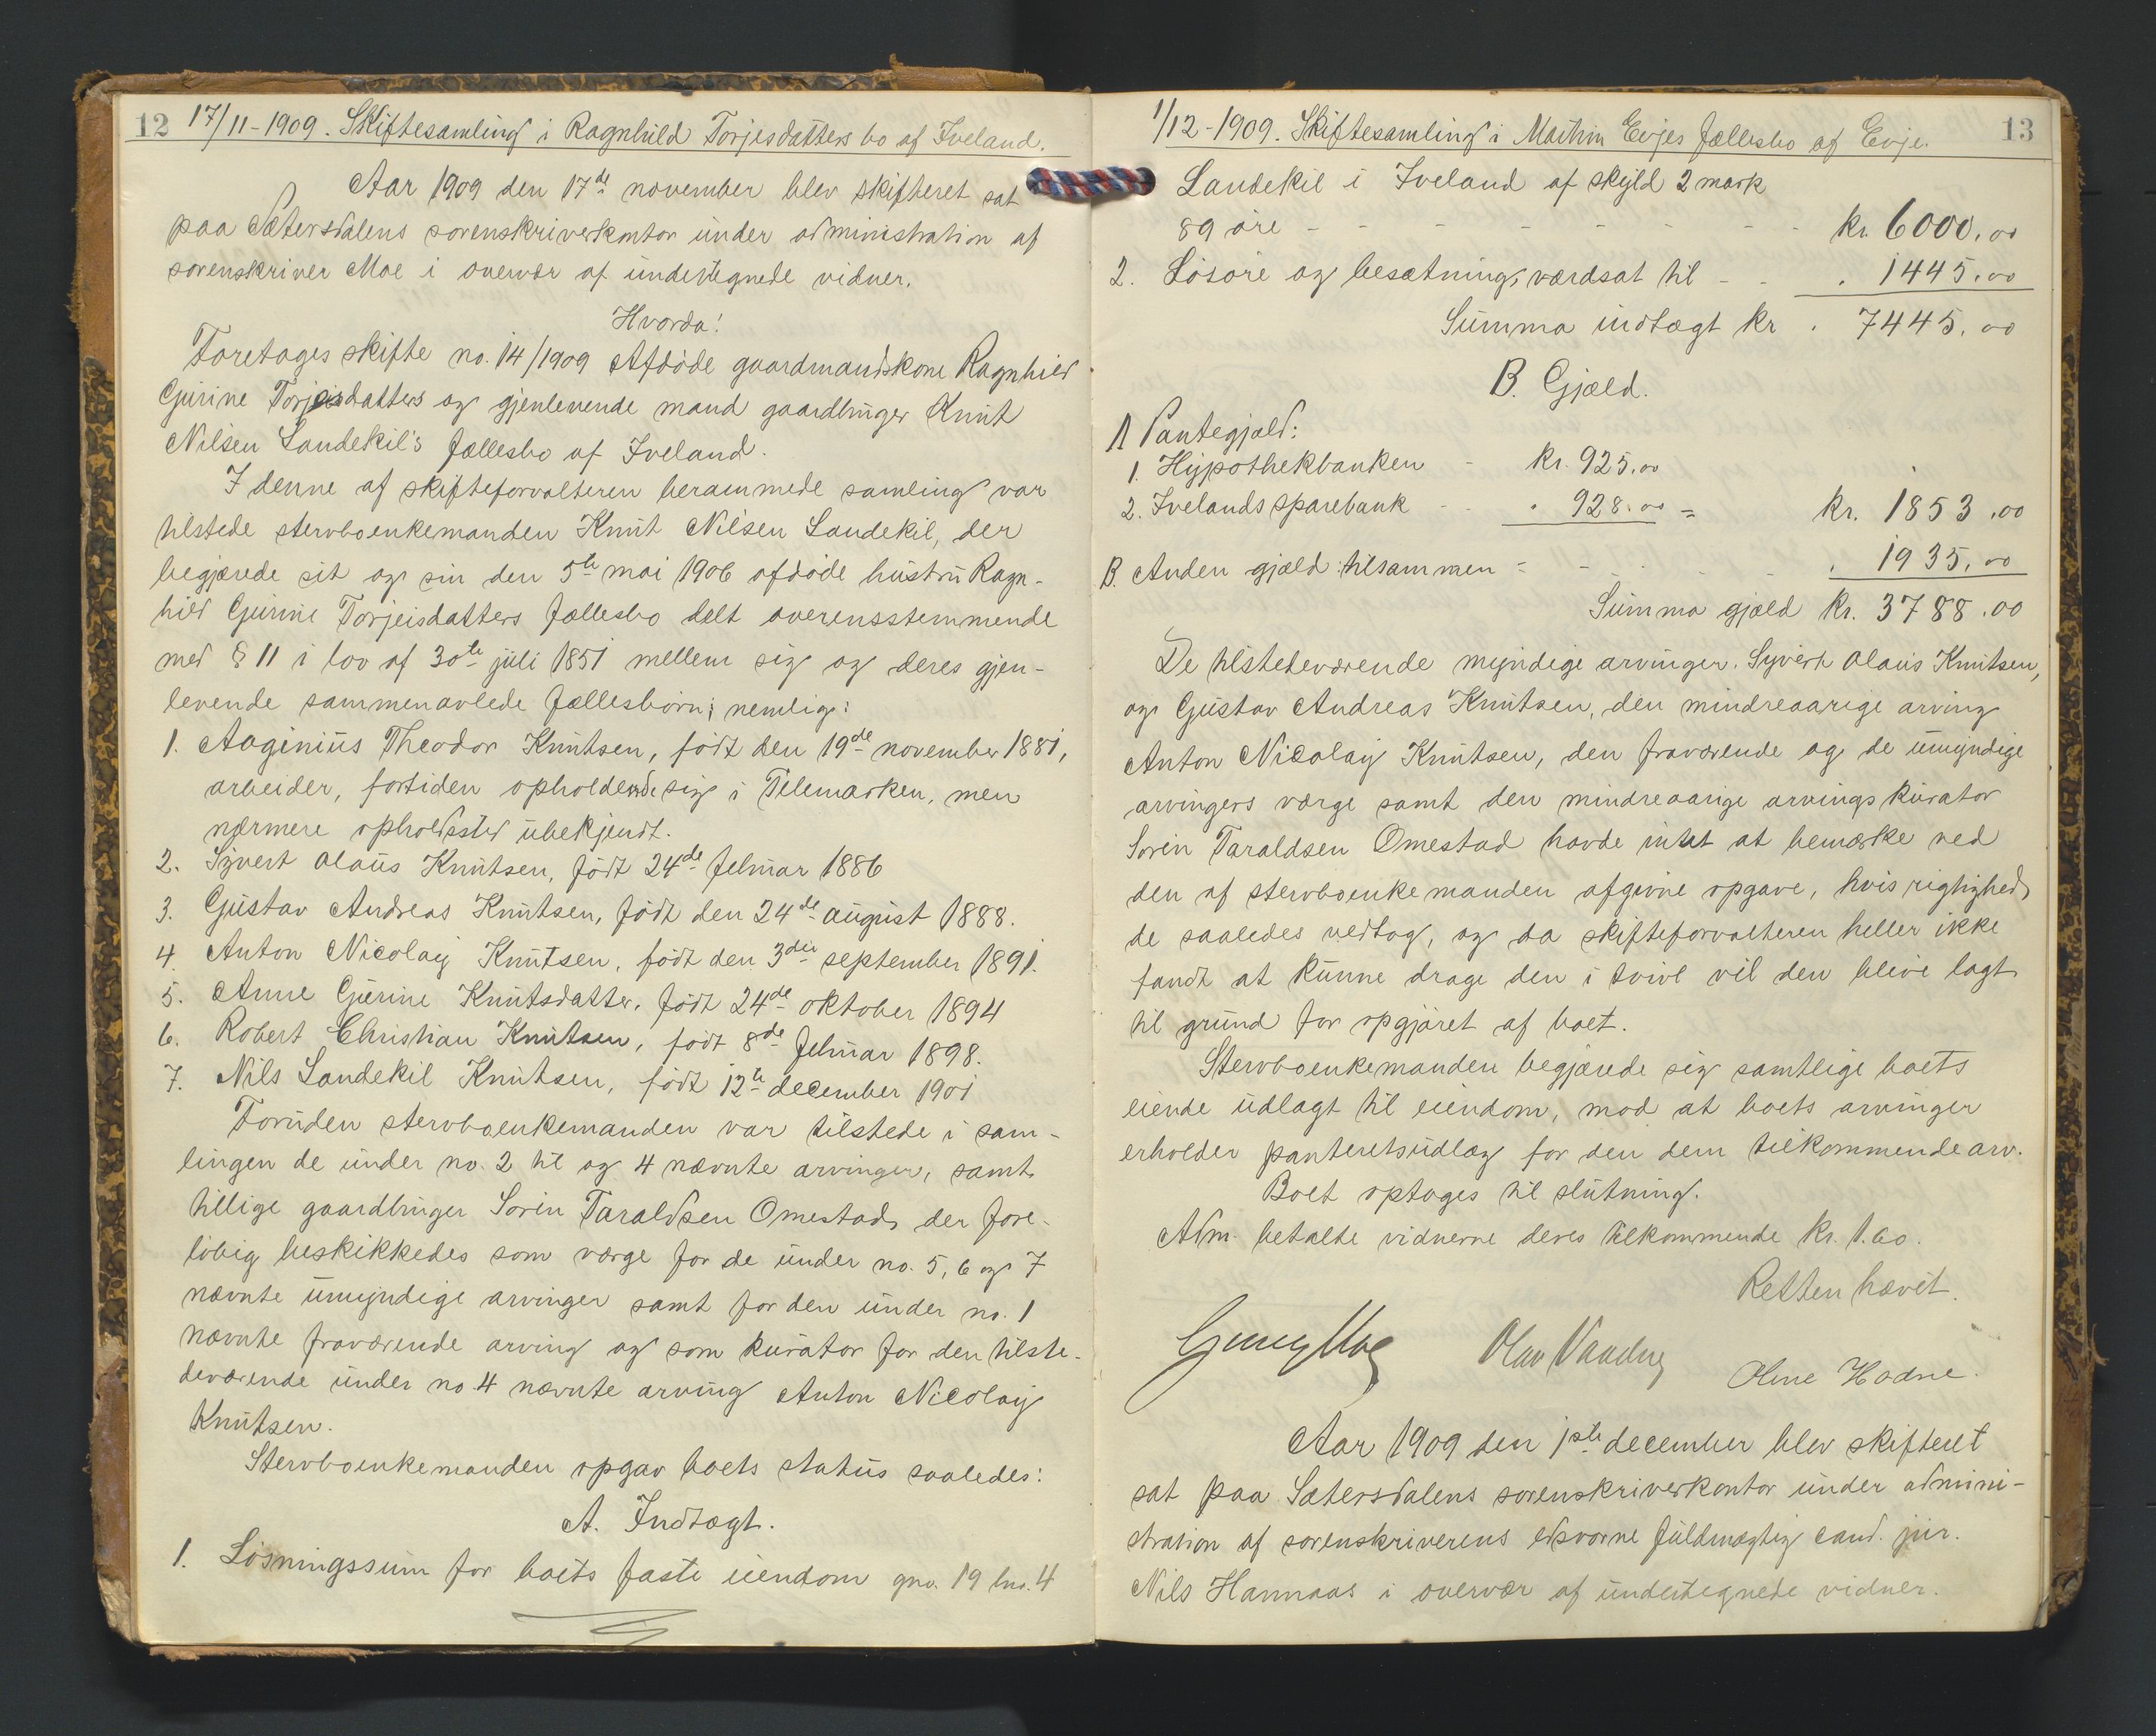 12 17/11-1909. Skiftesamling i Ragnhild Torjesdatters bo af Iveland.
Aar 1909 den 17de november blev skifteret sat
paa Sætersdalens sorenskriverkontor under administration af
sorenskriver Moe i overvær af undertegnede vidner.
Hvorda!
Foretages skifte no. 14/1909 Afdöde gaardmandskone Ragnhild
Gurine Torjeisdatters og gjenlevende mand gaardbruger Knut
Nilsen Landekil's fællesbo af Iveland.
I denne af skifteforvalteren berammede samling var
tilstede stervboenkemanden Knut Nilsen Landekil, der
begjærede sit og sin den 5te mai 1906 afdöde hustru Ragn-
hild Gurine Torjeisdatters fællesbo delt overensstemmende
med § 11 i lov af 30te juli 1851 mellem sig og deres gjen-
levende sammenavlede fællesbörn; nemlig:
1. Aaginius Theodor Knutsen, födt den 19de november 1881,
arbeider, fortiden opholdende sig i Telemarken, men
nærmere opholdssted ubekjendt.
2. Syvert Olaus Knutsen, födt 24de februar 1886
3. Gustav Andreas Knutsen, födt den 24de august 1888.
4. Anton Nicolay Knutsen, födt den 3die september 1891.
5. Anne Gurine Knutsdatter, födt 24de oktober 1894
6. Robert Christian Knutsen, födt 8de februar 1898.
7. Nils Landekil Knutsen, födt 12te december 1901
Foruden stervboenkemanden var tilstede i sam-
lingen de under no. 2 til og 4 nævnte arvinger, samt
tillige gaardbruger Sorin Taraldsen Omestad, der fore-
löbig beskikkedes som værge for de under no. 5, 6 og 7
nævnte umyndige arvinger samt for den under no. 1
nævnte fraværende arving og som kurator for den tilste-
deværende under no 4 nævnte arving Anton Nicolay
Knutsen.
Stervboenkemanden opgav boets status saaledes:
A. Indtægt.
1. Lösningssum for boets faste eiendom gno. 19 bno. 4
1/12-1909. Skiftesamling i Mathin Evjes fællesbo af Evje. 13
Landekil i Iveland af skyld 2 mark
89 öre - - - - - - - kr. 6000.00
2. Lösöre og besætning, værdsat til - - . 1445.00
Summa indtægt kr . 7445.00
B. Gjæld.
A Pantegjæld:
1. Hypothekbanken - kr. 925.00
2. Ivelands sparebank - - . 928.00 = kr. 1853.00
B. Anden gjæld tilsammen - - - - - . 1935.00
Summa gjæld kr. 3788.00
De tilstedeværende myndige arvinger. Syvert Olaus Knutsen,
og Gustav Andreas Knutsen, den mindreaarige arving
Anton Nicolay Knutsen, den fraværende og de umyndige
arvingers værge samt den mindreaarige arvings kurator
Sorin Taraldsen Omestad havde intet at bemærke ved
den af stervboenkemanden afgivne opgave, hvis rigtighed
de saaledes vedtog, og da skifteforvalteren heller ikke
fandt at kunne drage den i tvivl vil den blive lagt
til grund for opgjöret af boet.
Stervboenkemanden begjærede sig samtlige boets
eiende udlagt til eiendom, mod at boets arvinger
erholder panteretsudlæg for den dem tilkommende arv.
Boet optages til slutning.
Adm. betalte vidnerne deres tilkommende kr. 1.60.
Retten hævet.
Olav Olne Hodne.
Aar 1909 den 1ste december blev skifteret
sat paa Sætersdalens sorenskriverkontor under admini-
stration af sorenskriverens edsvorne fuldmægtig cand. jur.
Nils Hannaas i overvær af undertegnede vidner.